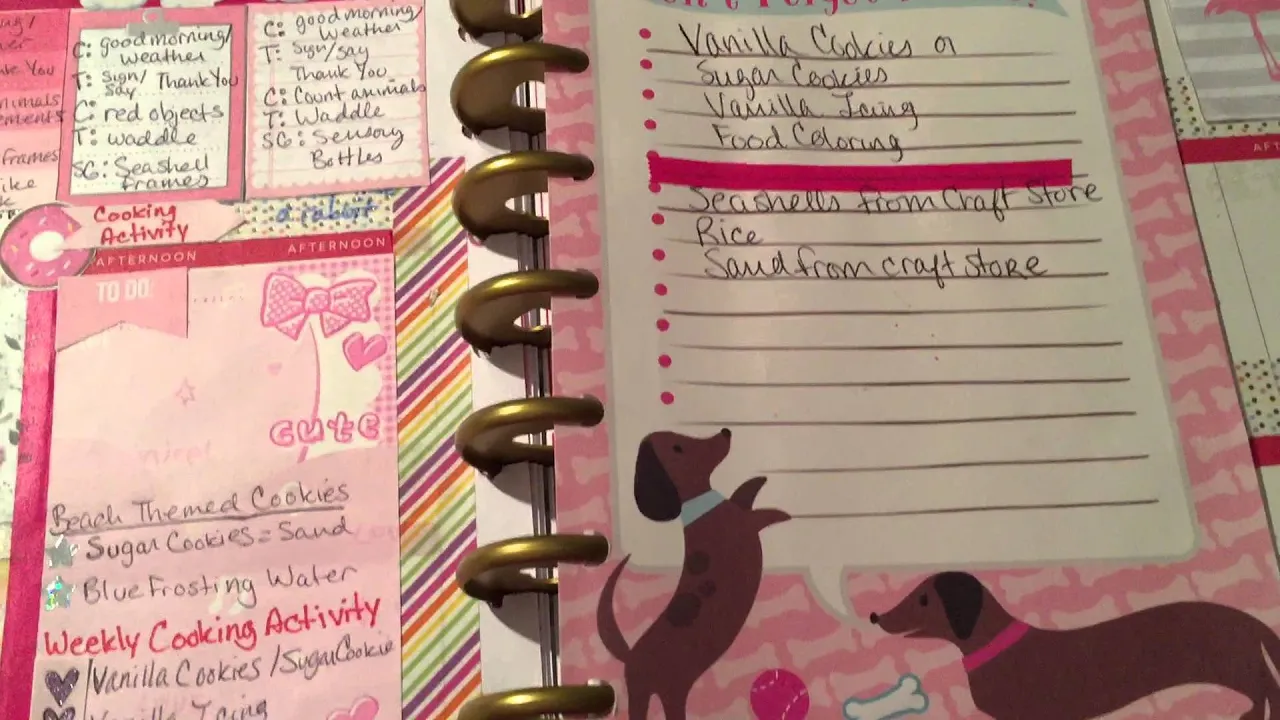 C: good morning/
weather
T: Sign/
Say Thank You
C: red objects
T: waddle
SG: Seashell
frames
C: good morning/
Weather
T: Sign/say
Thank You
C: Count animals
T: Waddle
SG: Sensory
Bottles
frames
Cooking
Activity
a rabbit
AFTERNOON
AFTERNOON
TO DO:
cute
Beach Themed Cookies
Sugar Cookies = Sand
Blue Frosting Water
Weekly Cooking Activity
Vanilla Cookies / Sugar Cookie
Vanilla Icing
Vanilla Cookies or
Sugar Cookies
Vanilla Icing
Food Coloring
Seashells from Craft Store
Rice
Sand from craft store